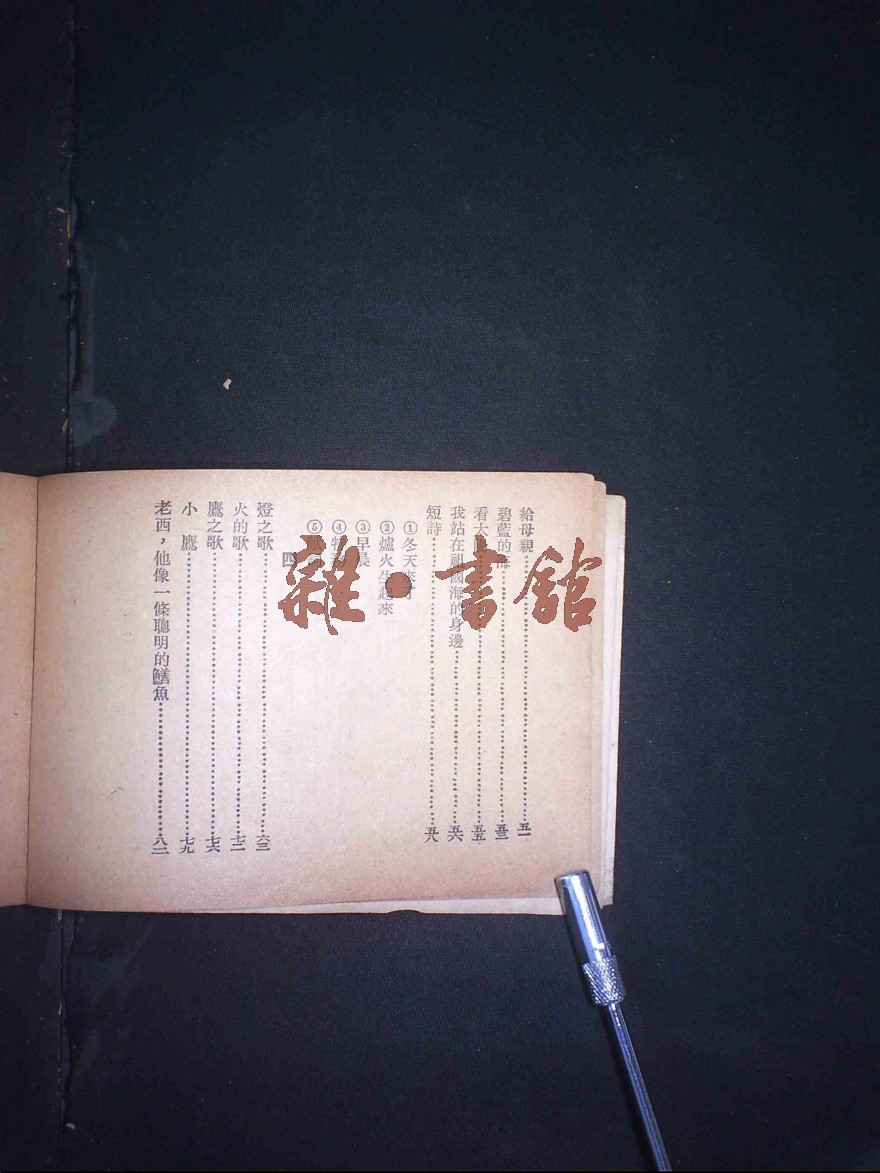 給母親……五一
碧藍的海……五三
看大……五五
我站在祖國海的身邊……五六
短詩……五八
①冬天來了
②爐火生起來
③早晨
④
⑤
四
燈之歌……六三
火的歌……七二
鷹之歌……七六
小鷹……七九
老西，他像一條聰明的鱔魚……八二
雜·書館